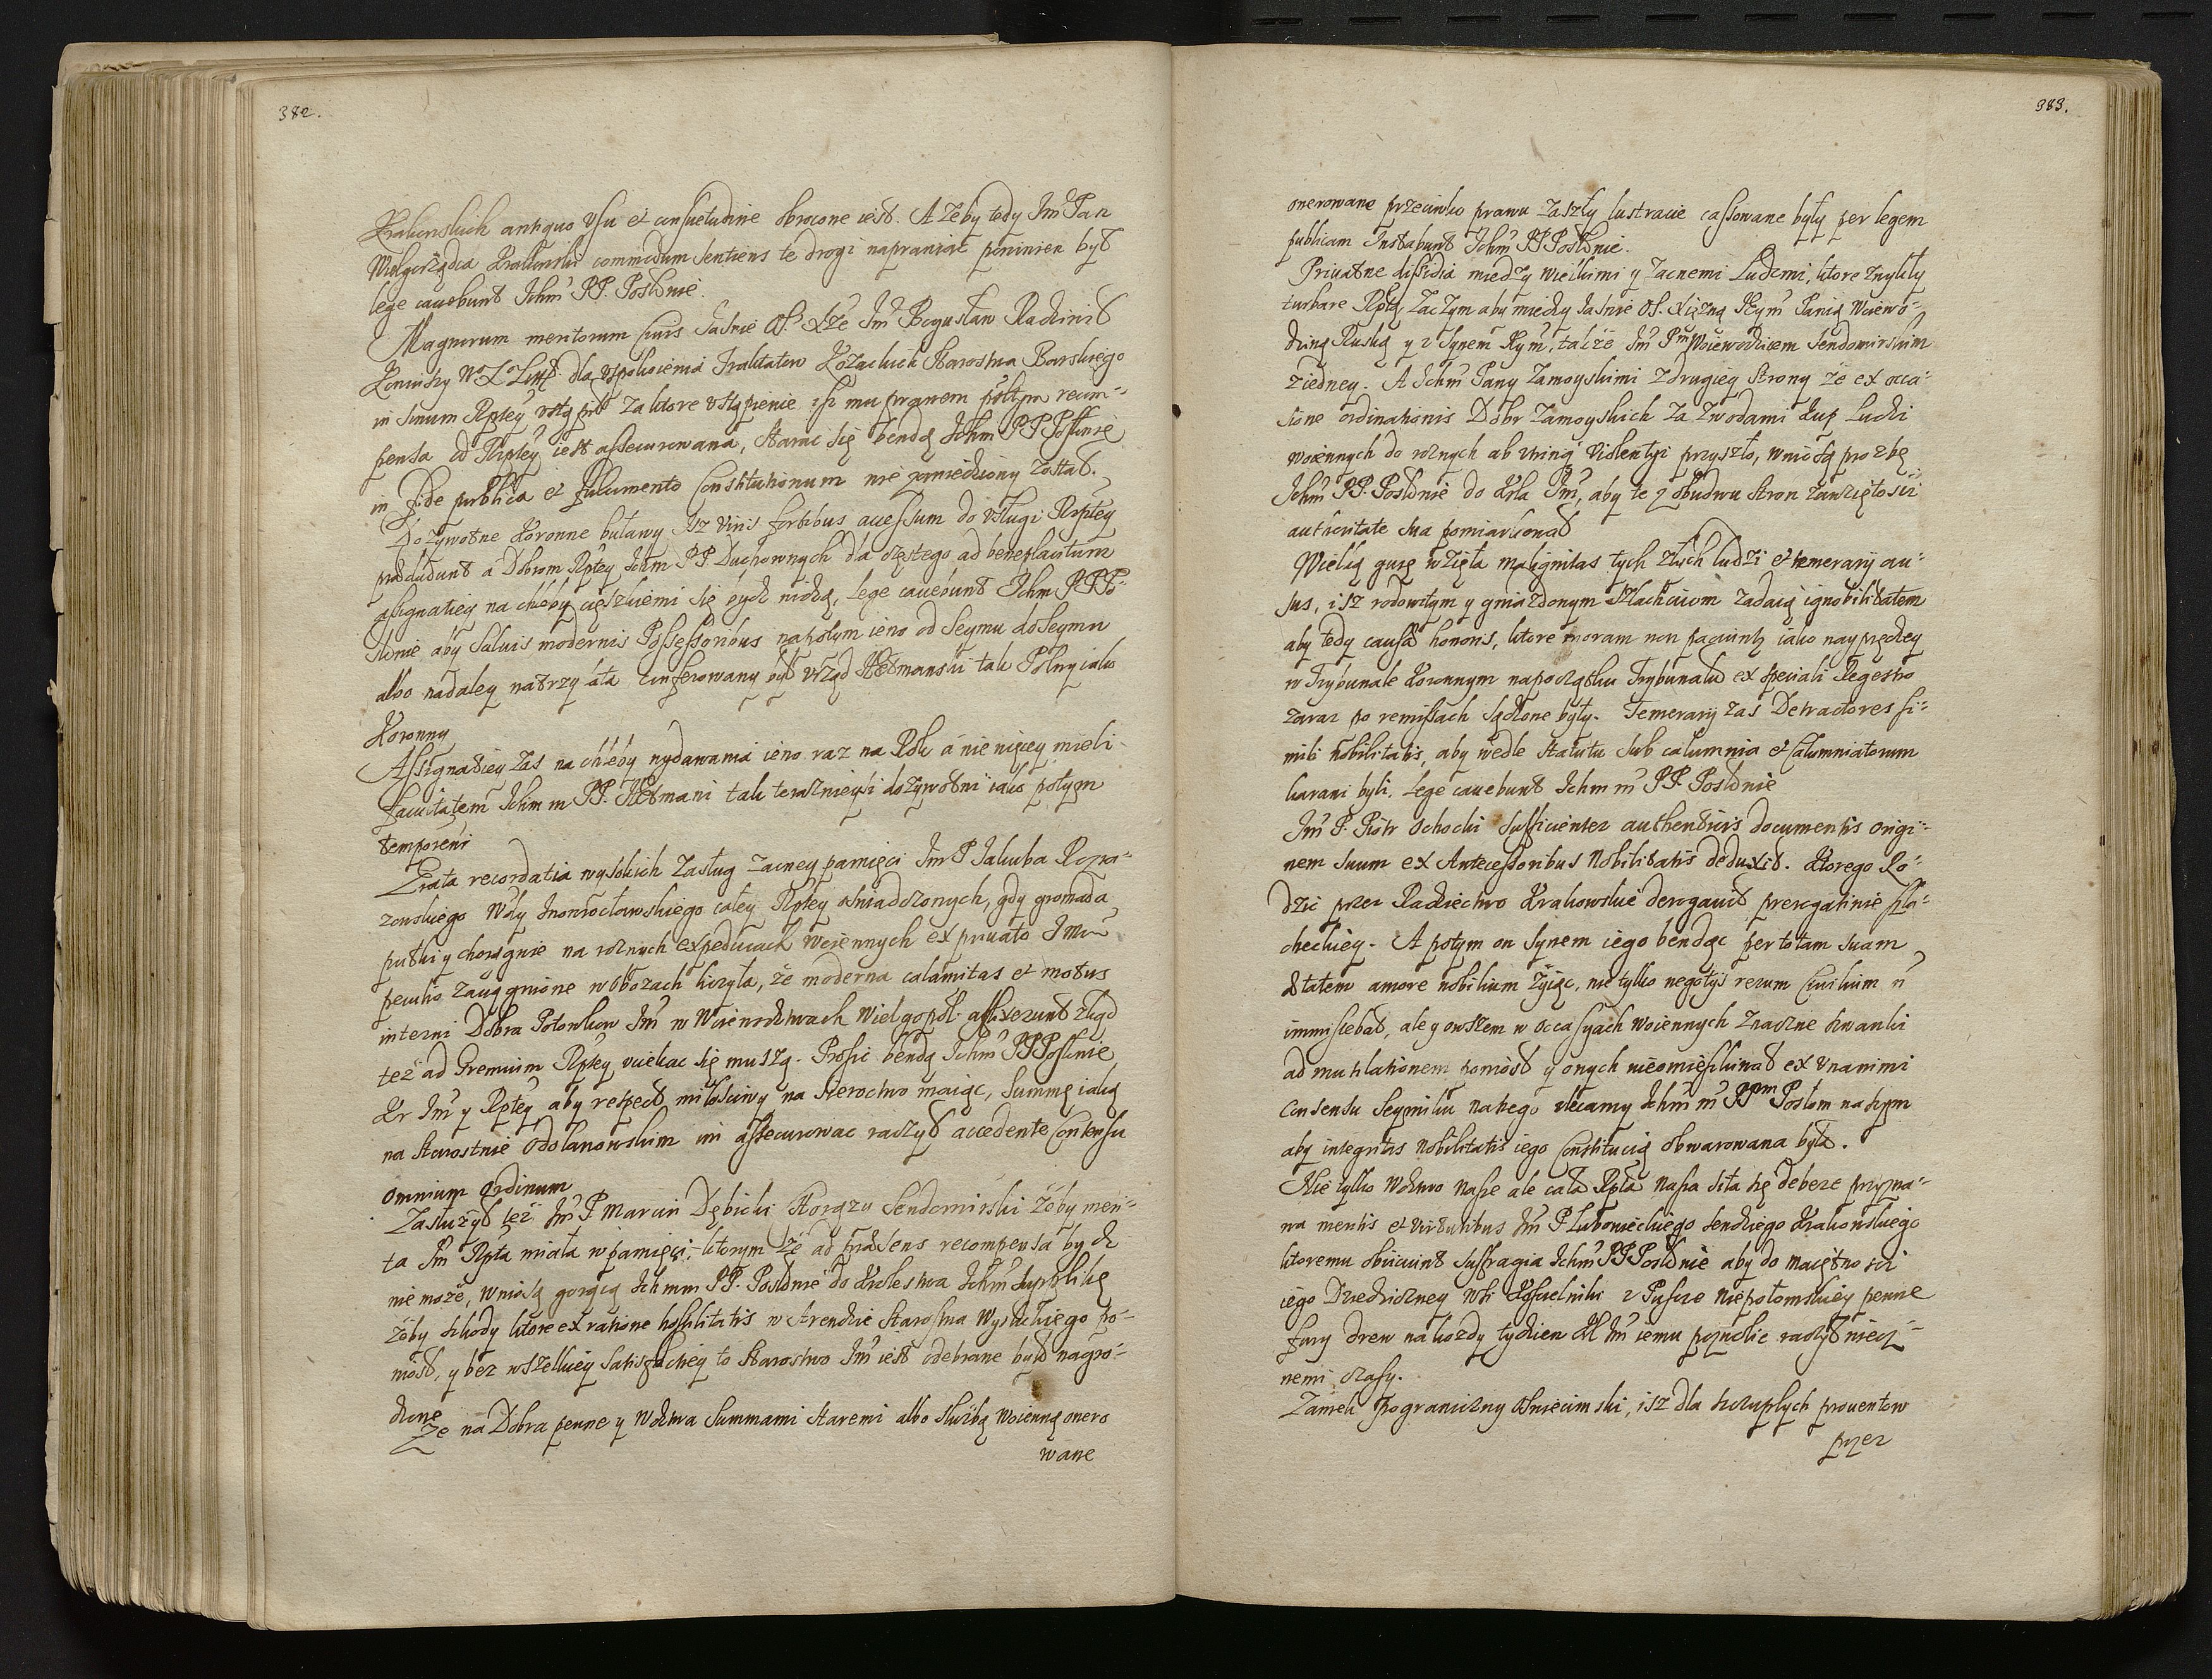 382.
Krakowskich antiquo Usu et consuetudine obrocone iest. A Zeby tedy Im Pan
Wielgorządca Krakowski commodum sentiens te drogi naprawiać powinien był
lege cauebunt Ichm PP. Posłowie.
Magnorum meritorum Ciuis Jasnie Os. Xże Im Bogusław Radziwił
Koniuszy W. X. Litt. dla vspokoienia Traktatow Kozackich Starostwa Barskiego
in sinum Rptey vstąpił za ktore vstąpienie isz mu prawem połtym recom-
pensa od Rptey iest assecurowana, starac się bendą Ichm PP Posłowie
in Fide publica et fulcimento Constitutionum nie zawiedziony został.
Dożywotne Koronne buławy isz Viris fortibus accessum do Usługi Rptey
præcludunt a Dobrom Rptey Ichm PP Duchownych dla częstego ad beneplacitum
assignatiey na chleby cięszkiemi się bydz widzą, Lege cauebunt Ichm PP Po-
słowie aby Saluis modernis Possessoribus napotym ieno od Seymu do Seymu
albo nadaley natrzy lata conferowany był vrząd Hetmanski tak Polny iako
Koronny
Assignatiey zas na chleby wydawania ieno raz na Rok a nie więcey mieli
facultatem Ichm m PP. Hetmani tak terazniejsi dożywotni iako potym
temporeni
Grata recordatia wysokich Zasług zacney pamięci Im P Jakuba Rozra-
zewskiego Wdy Inowrocławskiego całey Rptey oswiadczonych, gdy gromada
pułki y chorągwie na roznych expediciach Woiennych ex priuato Imci
peculio zaciągnione w obozach liczyła, że moderna calamitas et motus
interni Dobra Potomkow Im w Woiewodztwach Wielgopol. afflixerunt zkąd
też ad Gremium Rptey vciekac się muszą. Prosic bendą Ichm PP Posłowie
Kr Im y Rptey aby respect miłosciwy na sieroctwo maiąc, Summę iaką
na Starostwie Odolanowskim im assecurowac raczył accedente Consensu
omnium ordinum
Zasłużył też Im P. Marcin Dębicki Chorązy Sendomirski żeby meri-
ta Im Rpta miała w pamięci, ktorym że ad præsens recompensa bydz
nie może, wniosą gorącą Ichmm PP. Posłowie do Krolestwa Ichm Supplikę
żeby szkody ktore ex ratione hostilitatis w Arendzie Starostwa Wyszkiego po-
niósł, y bez wszelkiey satisfactiey to Starostwo Im iest odebrane było nagro-
dzone
Ze na Dobra pewne y Wdztwa Summami Staremi albo służbą woienną onero
wane
383.
onerowane przeciwko prawu zaszły lustracie cassowane były per legem
publicam Instabunt Ichm PP Posłowie.
Priuatne dissidia miedzy wielkimi y zacnemi Ludzmi, ktore zwykły
turbare Rptą, Zaczym aby miedzy Jasnie Os. Xiężną Jeym Panią Woiewo-
dziną Ruską y z Synem Jeym, także Im Pm Woiewodzicem Sendomirskim
z iedney. A Ichm Pany Zamoyskimi z drugiey Strony że ex occa-
sione ordinationis Dobr Zamoyskich za zwodami kup Ludzi
woiennych do roznych ab utrinq Violentyi przyszło, wniosą prozbę
Ichm PP. Posłowie do Krla Im, aby te z obudwu stron zawziętosci
authoritate sua pomiarkował
Wielką gurę wzięła malignitas tych złych ludzi et temerarij au-
sus, isz rodowitym y gniazdonym Szlachcicom zadaią ignobilitatem
aby tedy causæ honoris, ktore moram non patiuntur iako nayprędzey
w Trybunale Koronnym napoczątku Trybunału ex speciali Regestro
zaraz po remissach sądzone były. Temerarij zas Detractores si-
mili nobilitatis, aby wedle statutu sub calumnia et Calumniatorum
karani byli. Lege cauebunt Ichm m PP. Posłowie
Im P. Piotr Ochocki Sufficienter authenticis documentis origi-
nem suum ex Antecessoribus Nobilitatis deduxit. Ktorego Ro-
dzic przez Radziectwo Krakowskie derogauit prerogatiwie szla-
checkiey. A potym on Synem iego bendąc per totam suam
ætatem amore nobilium żyiąc, nie tylko negotijs rerum Ciuilium n
immiscebat, ale y owszem w occasyach woiennych znaczne szwanki
ad mutilationem poniósł y onych nieomieszkiwał ex Vnanimi
Consensu Seymiku naszego zlecamy Ichm m PPm Posłom naszym
aby integritas Nobilitatis iego Constitucią obwarowana była.
Nie tylko Wdztwo nasze ale cała Rpta nasza siła się debere przyzna-
wa meritis et virtutibus Im P. Lubowieckiego Sendziego Krakowskiego
ktoremu obiiciunt Suffragia Ichm PP Posłowie aby do maiętnosci
iego Dziedziczney Wsi Koscielniki z Puszcze Niepołomskiey pewne
fury drew na kozdy tydzien Kl Im iemu pozwolic raczył wiecz-
nemi czasy.
Zamek Pograniczny Oswiecimski, isz dla szczupłych prouentow
przez